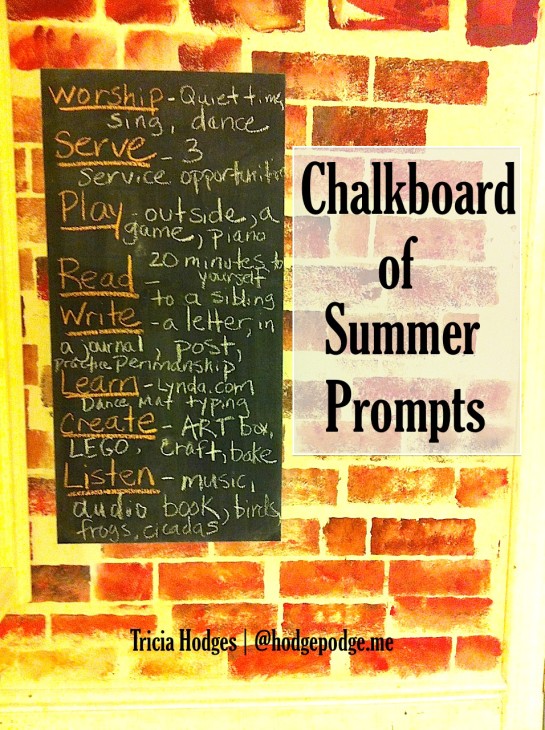 Worship - Quiet time,
sing, dance
Serve - 3
service opportunities
Play - outside, a
game, piano
20 minutes to
Read - yourself
to a sibling
Write - a letter, in
a journal, post,
practice penmanship
Learn - Lynda.com
Dance Mat typing
Create - ART box,
LEGO, craft, bake
Listen - music,
audio book, birds,
frogs, cicadas
Chalkboard
of
Summer
Prompts
Tricia Hodges | @hodgepodge.me